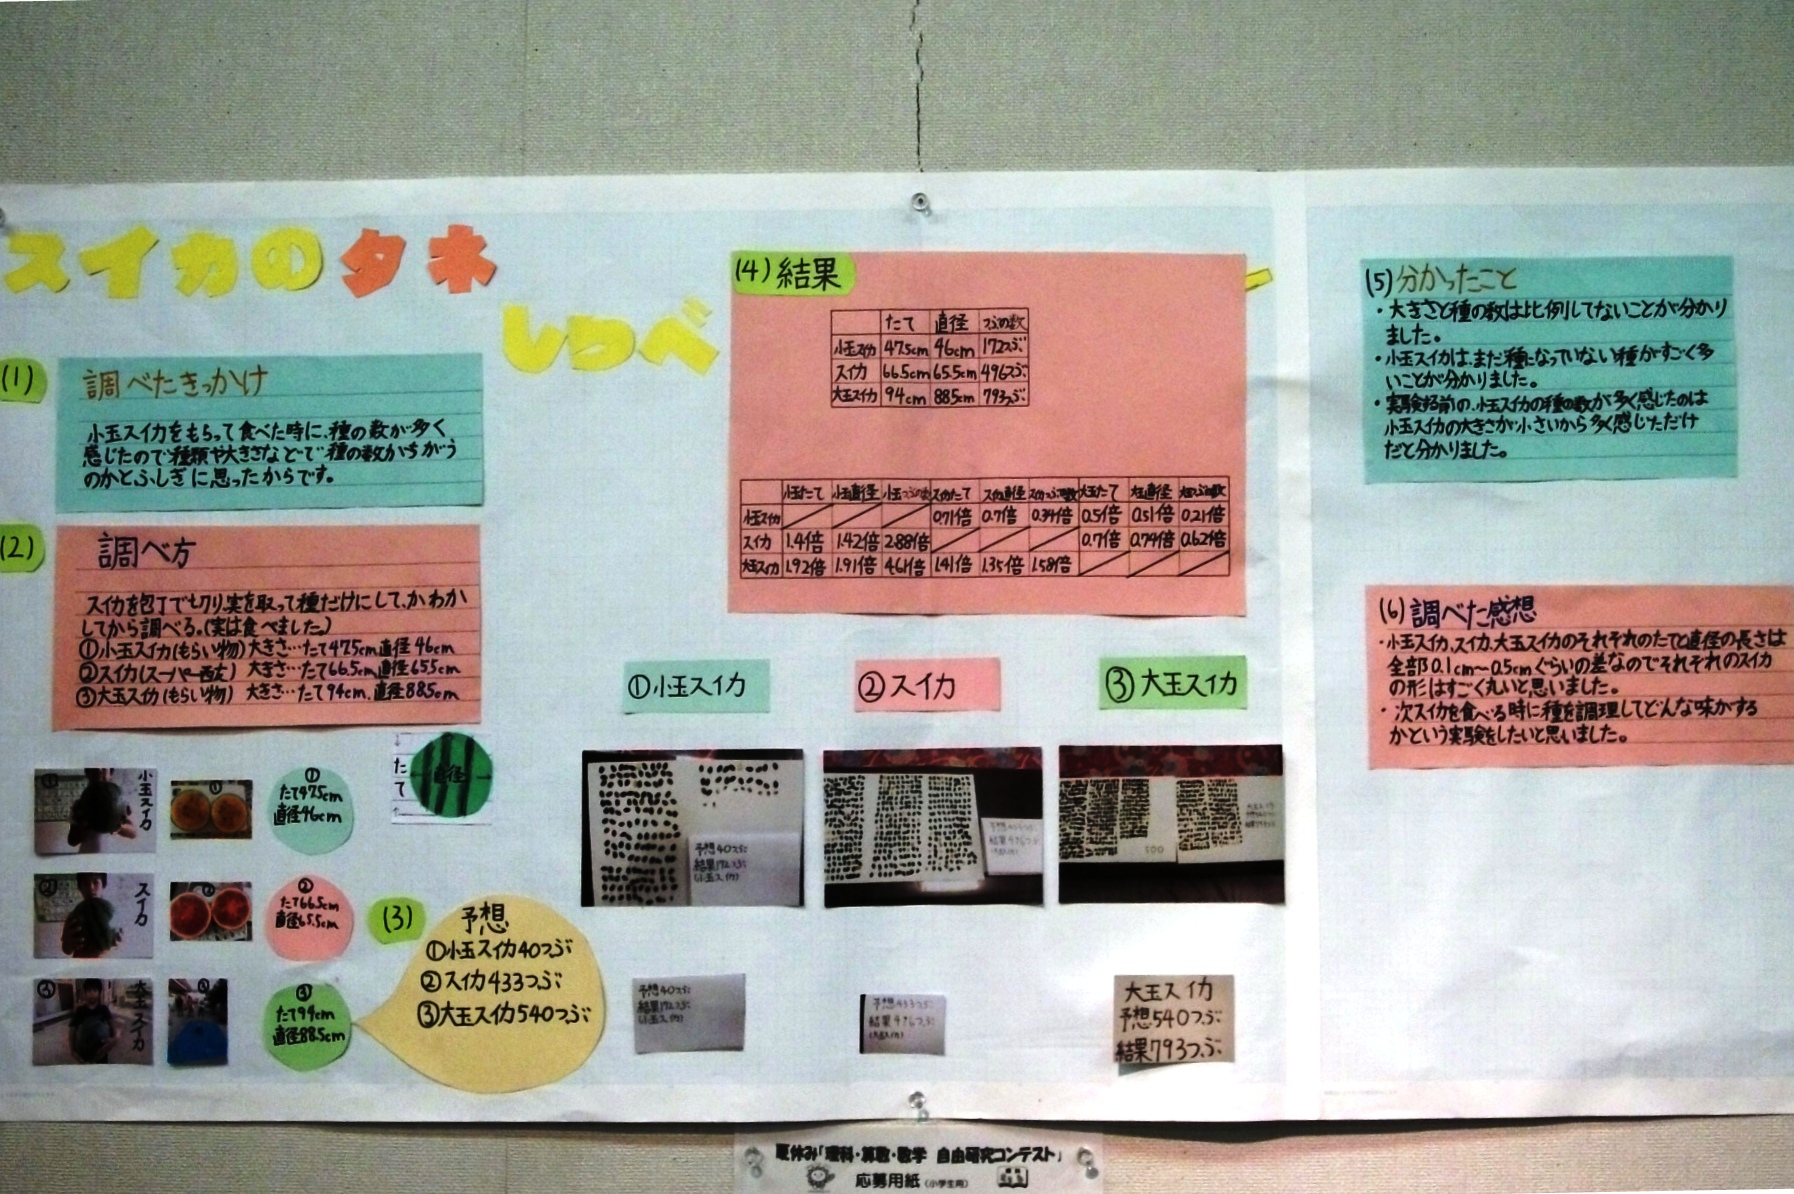 スイカのタネ
しらべ
(1)
調べたきっかけ
小玉スイカをもらって食べた時に、種の数が多く
感じたので種類や大きさなどで種の数がちがう
のかとふしぎに思ったからです。
(2)
調べ方
スイカを包丁で切り、実を取って種だけにして、かわか
してから調べる。(実は食べました。)
①小玉スイカ(もらい物)大きさ…たて47.5cm直径46cm
②スイカ(スーパー西友)大きさ…たて66.5cm直径65.5cm
③大玉スイカ(もらい物)大きさ…たて94cm、直径88.5cm
たて
直径
① 小玉スイカ
①
①
たて47.5cm
直径46cm
② スイカ
②
②
たて66.5cm
直径65.5cm
③ 大玉スイカ
③
③
たて94cm
直径88.5cm
(3)
予想
①小玉スイカ40つぶ
②スイカ433つぶ
③大玉スイカ540つぶ
(4)結果
たて 直径 つぶの数
小玉スイカ 47.5cm 46cm 172つぶ
スイカ 66.5cm 65.5cm 496つぶ
大玉スイカ 94cm 88.5cm 793つぶ
小玉たて 小玉直径 小玉つぶの数 スイカたて スイカ直径 スイカつぶの数 大玉たて 大玉直径 大玉つぶの数
小玉スイカ 0.71倍 0.7倍 0.34倍 0.5倍 0.51倍 0.21倍
スイカ 1.4倍 1.42倍 2.88倍 0.7倍 0.74倍 0.62倍
大玉スイカ 1.92倍 1.91倍 4.61倍 1.41倍 1.35倍 1.58倍
①小玉スイカ
②スイカ
③大玉スイカ
予想40つぶ
結果172つぶ
(小玉スイカ)
予想40つぶ
結果172つぶ
(小玉スイカ)
予想433つぶ
大玉スイカ
予想540つぶ
結果793つぶ
(5)分かったこと
・大きさと種の数は比例してないことが分かり
ました。
・小玉スイカは、まだ種になっていない種がすごく多
いことが分かりました。
・実験する前の、小玉スイカの種の数が多く感じたのは
小玉スイカの大きさが小さいから多く感じただけ
だと分かりました。
(6)調べた感想
・小玉スイカ、スイカ、大玉スイカのそれぞれのたてと直径の長さは
全部0.1cm〜0.5cmぐらいの差なのでそれぞれのスイカ
の形はすごく丸いと思いました。
・次スイカを食べる時に種を調理してどんな味がする
かという実験をしたいと思いました。
夏休み「理科・算数・数学 自由研究コンテスト」
応募用紙(小学生用)